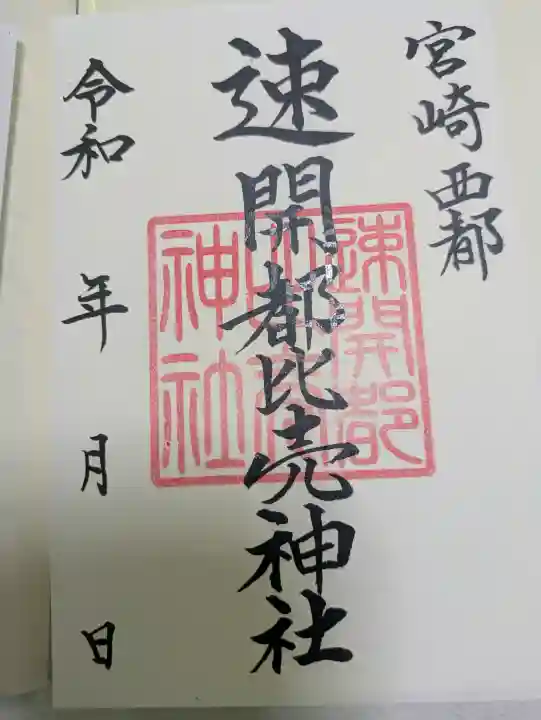 宮崎西都
速開都比売神社
速開都
比売
神社
令和 年 月 日